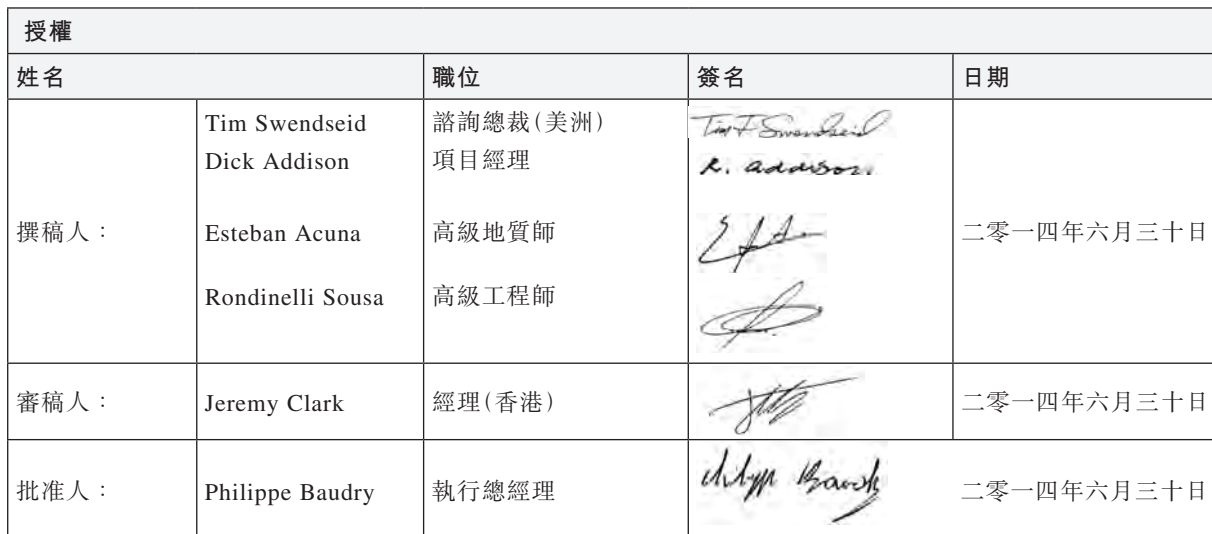 授權
姓名 職位 簽名 日期
Tim Swendseid 諮詢總裁(美洲) Tim F Swendseid
Dick Addison 項目經理 R. Addison.
撰稿人： Esteban Acuna 高級地質師 二零一四年六月三十日
Rondinelli Sousa 高級工程師
審稿人： Jeremy Clark 經理(香港) 二零一四年六月三十日
批准人： Philippe Baudry 執行總經理 二零一四年六月三十日